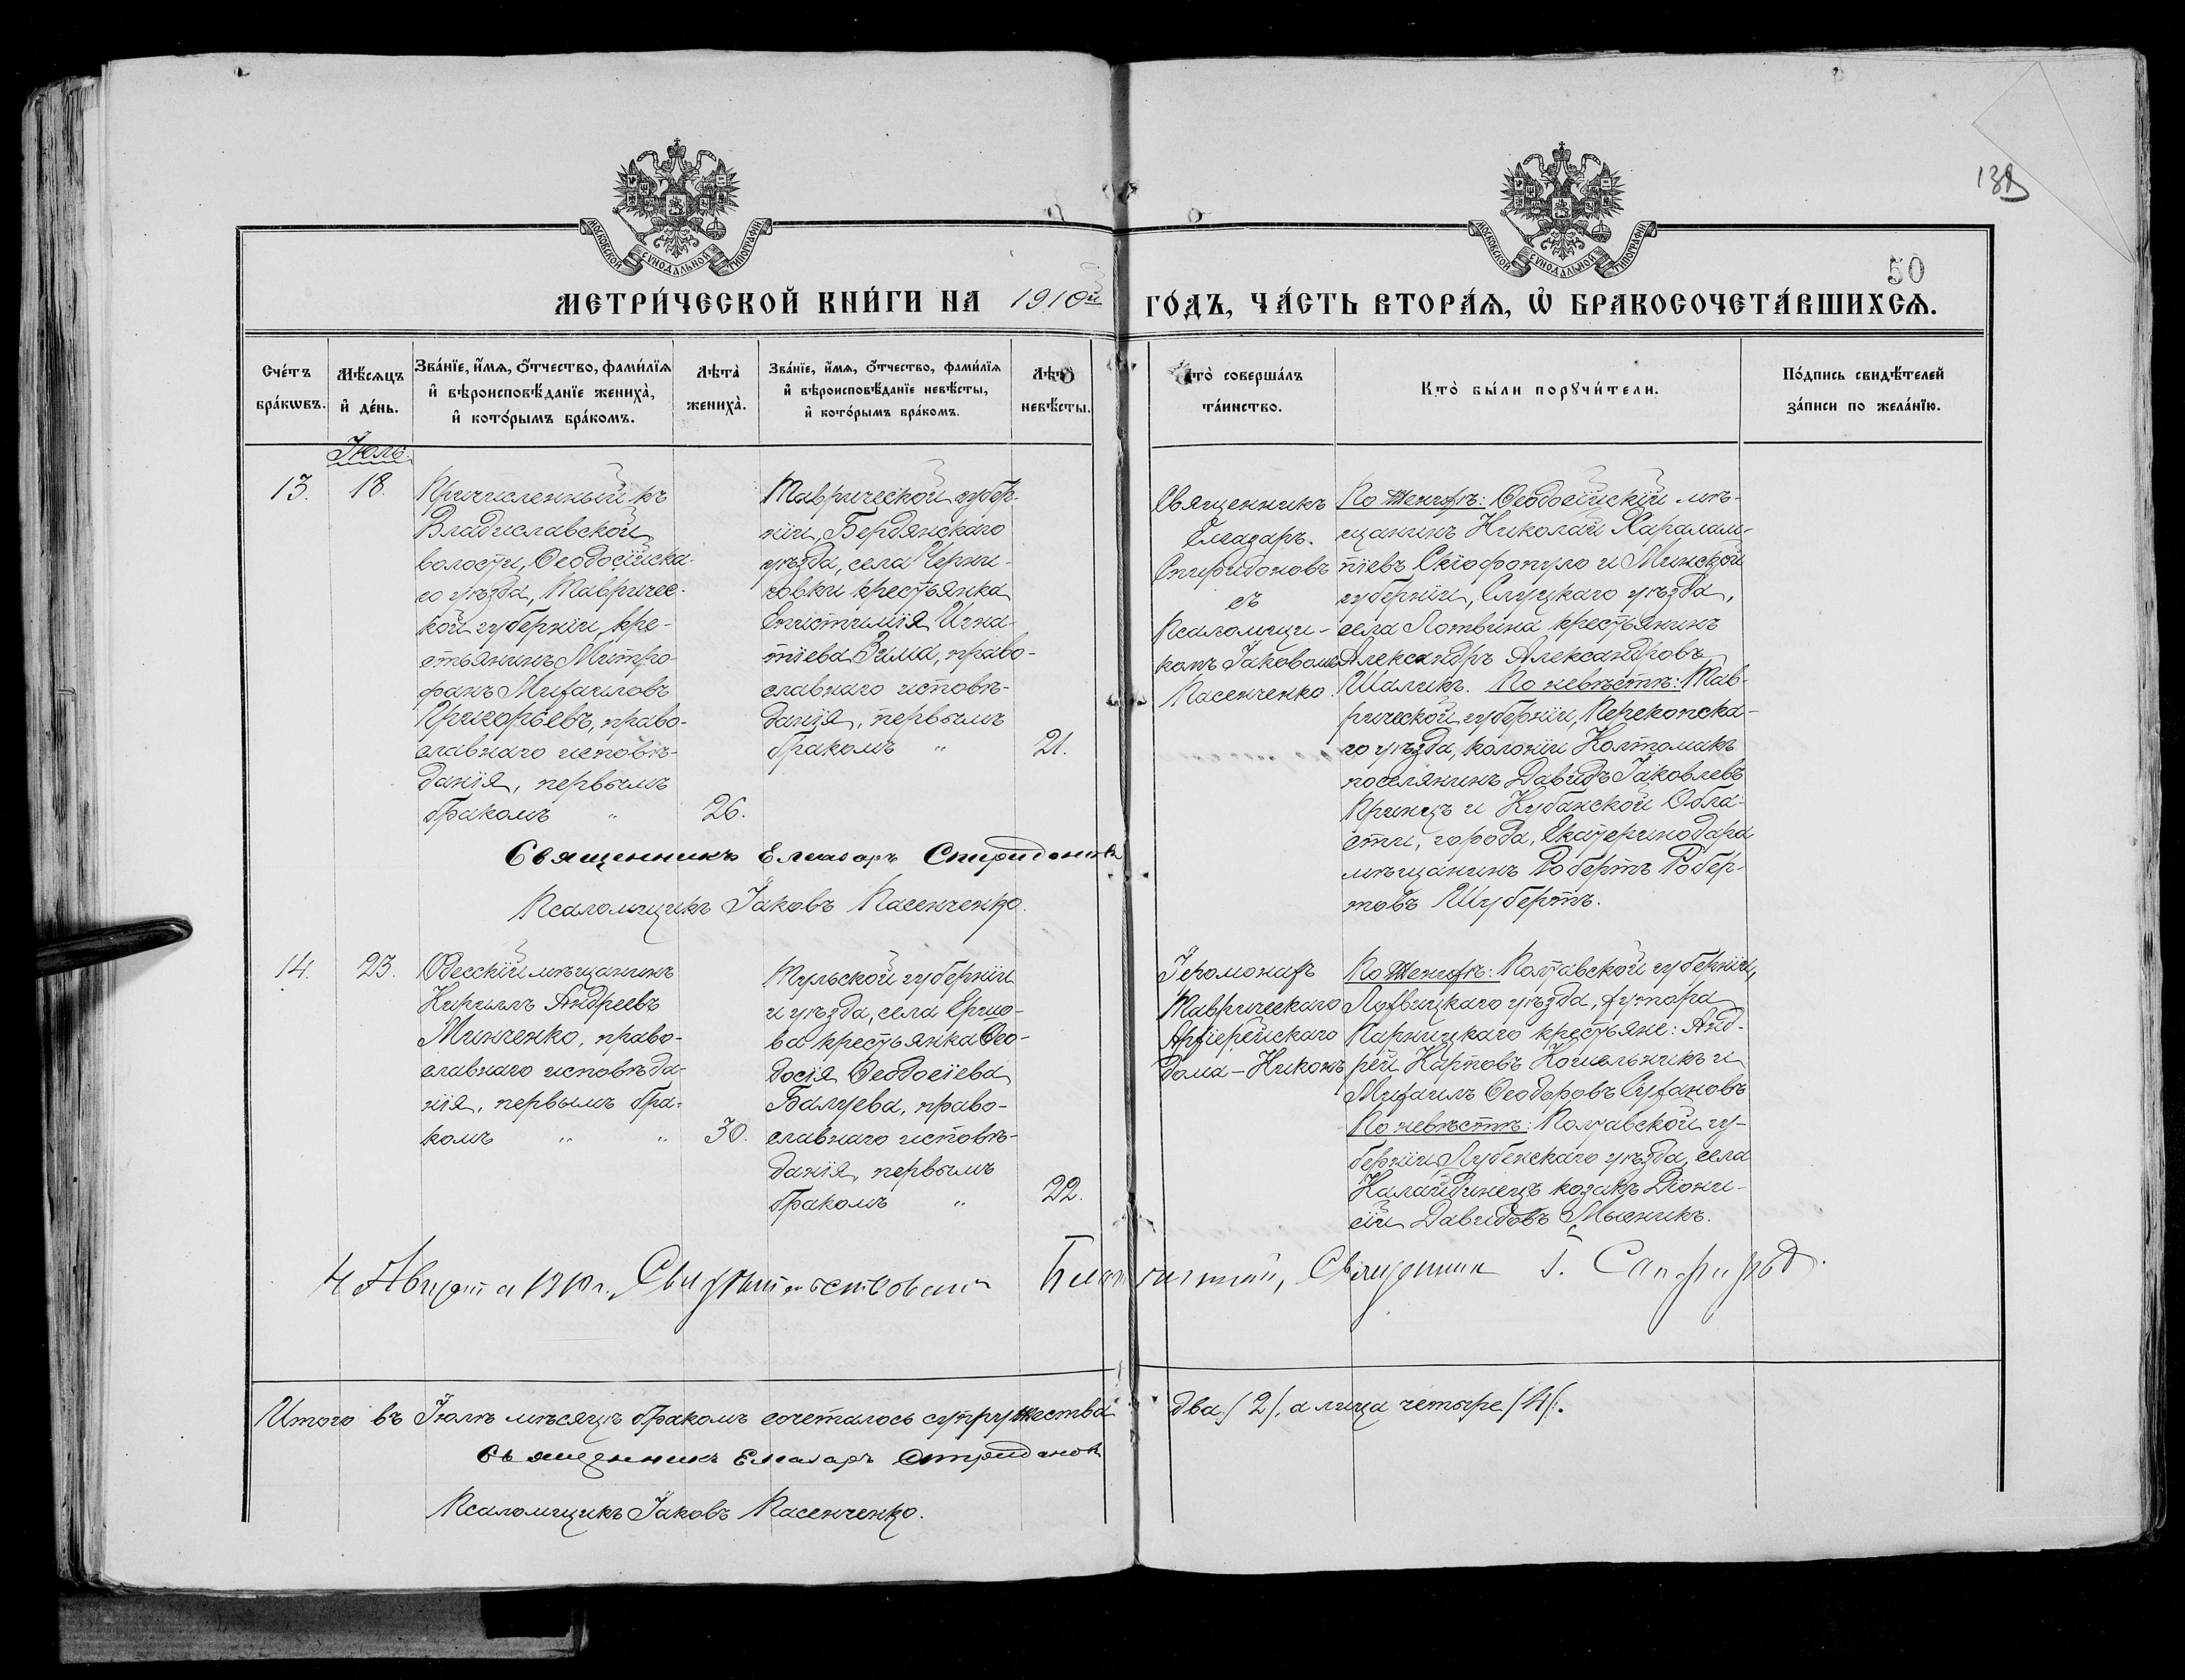 138
МОСКОВСКОЙ СѴНОДАЛЬНОЙ ТИПОГРАФІИ
МОСКОВСКОЙ СѴНОДАЛЬНОЙ ТИПОГРАФІИ
50
МЕТРИ́ЧЕСКОЙ КНИ́ГИ НА 1910й ГО́ДЪ, ЧА́СТЬ ВТОРА́Ѧ, Ѡ҆ БРАКОСОЧЕТА́ВШИХСѦ.
Сче́тъ бра́кѡвъ.
Мѣ́сѧцъ и҆ де́нь.
Зва́нїе, и҆́мѧ, ѻ҆́тчество, фами́лїѧ
и҆ вѣроисповѣ́данїе жениха̀,
и҆ кото́рымъ бра́комъ.
Лѣта̀ жениха̀.
Зва́нїе, и҆́мѧ, ѻ҆́тчество, фами́лїѧ
и҆ вѣроисповѣ́данїе невѣ́сты,
и҆ кото́рымъ бра́комъ.
Лѣта̀ невѣ́сты.
Кто̀ соверша́лъ
та́инство.
Кто̀ бы́ли порꙋчи́тели.
По́дпись свидѣ́телей
за́писи по жела́нїю.
Іюль.
13.
18.
Причисленный къ
Владиславской
волости, Ѳеодосійска-
го уѣзда, Тавричес-
кой губерніи, кре-
стьянинъ Митро-
фанъ Михаиловъ
Григорьевъ, право-
славнаго исповѣ-
данія, первымъ
бракомъ "
26.
Таврической губер-
ніи, Бердянскаго
уѣзда, села Черни-
говки крестьянка
Епистимія Игна-
тіева Зима, право-
славнаго исповѣ-
данія, первымъ
бракомъ "
21.
Священникъ
Елеазаръ
Спиридоновъ
съ
Псаломщи-
комъ Іаковомъ
Пасенченко.
По женихѣ: Ѳеодосійскій мѣ-
щанинъ Николай Харалам-
піевъ Скіофопуло и Минской
губерніи, Слуцкаго уѣзда,
села Лотвина крестьянинъ
Александръ Александровъ
Шаликъ. По невѣстѣ: Тав-
рической губерніи, Перекопска-
го уѣзда, колоніи Колтомакъ
поселянинъ Давидъ Іаковлевъ
Принцъ и Кубанской Обла-
сти, города, Екатеринодара
мѣщанинъ Робертъ Робер-
товъ Шубертъ.
Священникъ Елеазаръ Спиридоновъ
Псаломщикъ Іаковъ Пасенченко.
14.
23.
Одесскій мѣщанинъ
Кириллъ Андреевъ
Минченко, право-
славнаго исповѣда-
нія, первымъ бра-
комъ " "
30.
Тульской губерніи
и уѣзда, села Ершо-
ва крестьянка Ѳео-
досія Ѳеодосіева
Балуева, право-
славнаго исповѣ-
данія, первымъ
бракомъ "
22.
Іеромонахъ
Таврическаго
Архіерейскаго
дома – Никонъ
По женихѣ: Полтавской губерніи,
Лохвицкаго уѣзда, хутора
Парницкаго крестьяне: Анд-
рей Карповъ Кошельникъ и
Михаилъ Ѳеодоровъ Сухановъ
По невѣстѣ: Полтавской гу-
берніи, Лубенскаго уѣзда, села
Калайдинецъ козакъ Діони-
сій Давидовъ Мысникъ.
4 Августа 1910 г. Свидѣтельствовалъ Благочинный, Священник
Итого въ Іюлѣ мѣсяцѣ бракомъ сочеталось супружества два /2/, а лица четыре /4/.
Священникъ Елеазаръ Спиридоновъ
Псаломщикъ Іаковъ Пасенченко.